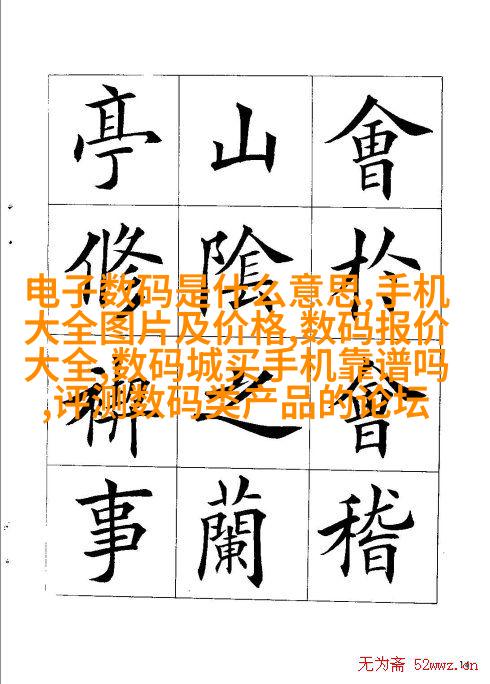 會扵會稽
山陰之蘭
亭脩禊事
电子数码是什么意思,手机
大全图片及价格,数码报价
大全,数码城买手机靠谱吗
,评测数码类产品的论坛
无为斋 52wwz.cn